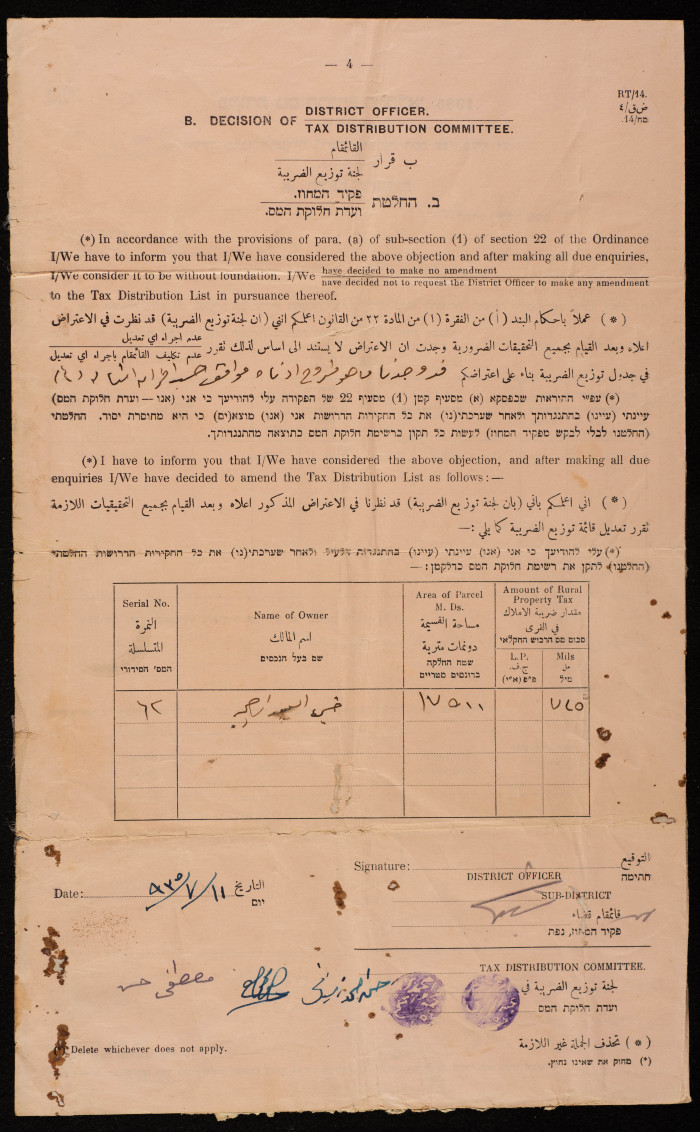 — 4 —
RT/14.
ض ق/٤
מח/14.
B. DECISION OF DISTRICT OFFICER.
TAX DISTRIBUTION COMMITTEE.
ب قرار القائمقام
لجنة توزيع الضريبة
ב. החלטת פקיד המחוז.
ועדת חלוקת המס.
(*) In accordance with the provisions of para. (a) of sub-section (1) of section 22 of the Ordinance
I/We have to inform you that I/We have considered the above objection and after making all due enquiries,
I/We consider it to be without foundation. I/We have decided to make no amendment
have decided not to request the District Officer to make any amendment
to the Tax Distribution List in pursuance thereof.
(*) عملاً باحكام البند (أ) من الفقرة (١) من المادة ٢٢ من القانون اعلمكم انني (ان لجنة توزيع الضريبة) قد نظرت في الاعتراض
اعلاه وبعد القيام بجميع التحقيقات الضرورية وجدت ان الاعتراض لا يستند الى اساس لذلك تقرر عدم اجراء اي تعديل
عدم تكليف القائمقام باجراء اي تعديل
في جدول توزيع الضريبة بناء على اعتراضكم
(*) עפ״י ההוראות שבפסקא (א) מסעיף קטן (1) מסעיף 22 של הפקודה עלי להודיעך כי אני (אנו—ועדת חלוקת המס)
עיינתי (עיינו) בהתנגדותך ולאחר שערכתי(נו) את כל החקירות הדרושות אני (אנו) מוצא(ים) כי היא מחוסרת יסוד. החלטתי
(החלטנו לבלי לבקש מפקיד המחוז) לעשות כל תקון ברשימת חלוקת המס כתוצאה מהתנגדותך.
(*) I have to inform you that I/We have considered the above objection, and after making all due
enquiries I/We have decided to amend the Tax Distribution List as follows:—
(*) اني اعلمكم باني (بان لجنة توزيع الضريبة) قد نظرنا في الاعتراض المذكور اعلاه وبعد القيام بجميع التحقيقات اللازمة
تقرر تعديل قائمة توزيع الضريبة كما يلي :—
(*) עלי להודיעך כי אני (אנו) עיינתי (עיינו) בהתנגדות דלעיל ולאחר שערכתי(נו) את כל החקירות הדרושות החלטתי
(החלטנו) לתקן את רשימת חלוקת המס כדלקמן:—
Serial No.
النمرة
المتسلسلة
המס׳ הסידורי
Name of Owner
اسم المالك
שם בעל הנכסים
Area of Parcel
M. Ds.
مساحة القسيمة
دونمات مترية
שטח החלקה
בדונמים מטריים
Amount of Rural
Property Tax
مقدار ضريبة الاملاك
في القرى
סכום מס הרכוש החקלאי
L.P.
ج.ف.
פ״ס (א״י)
Mils
مل
מיל
٦٢
١٧٥٠٠
٧٤٥
Signature:
التوقيع
חתימה
DISTRICT OFFICER
SUB-DISTRICT
قائمقام قضاء
פקיד המחוז, נפת
Date: ٩٣٥/٧/١١ التاريخ
יום
TAX DISTRIBUTION COMMITTEE.
لجنة توزيع الضريبة في
ועדת חלוקת המס
مصطفى حسن
(*) Delete whichever does not apply.
(*) تحذف الجملة غير اللازمة
(*) מחוק את שאינו נחוץ.